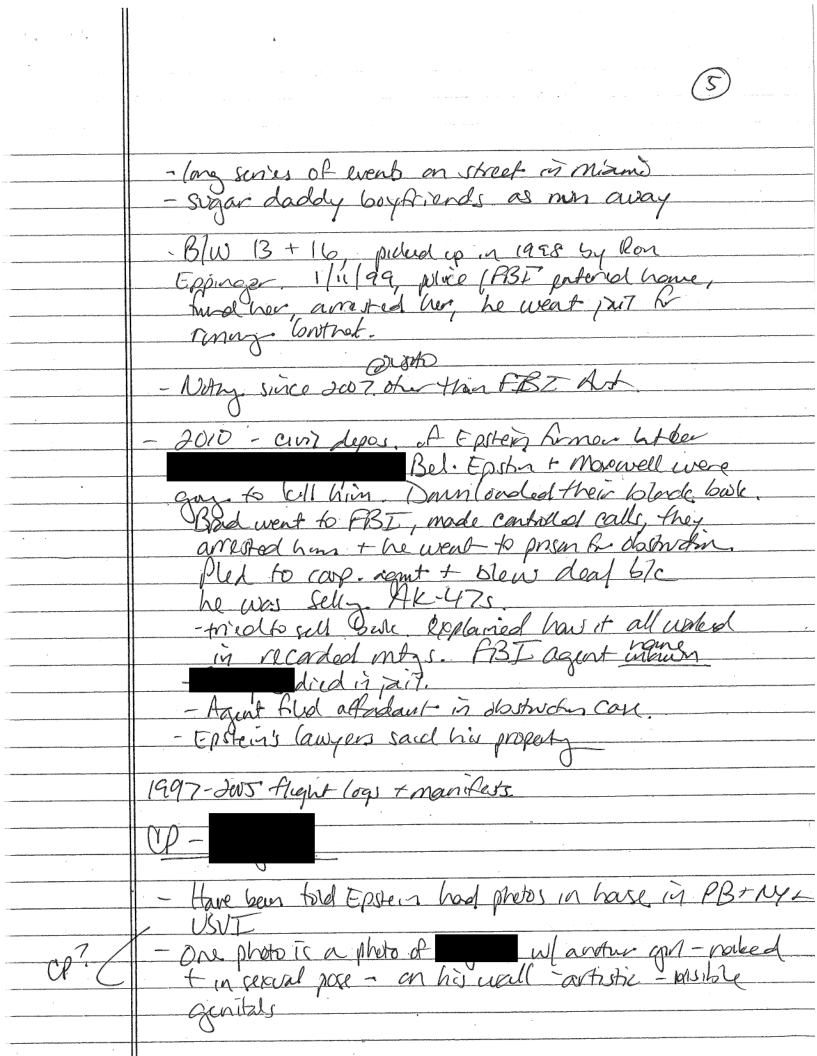 5
- long series of events on street in Miami
- sugar daddy boyfriends as run away
- B/W 13 + 16, picked up in 1998 by Ron
Eppinger. 1/11/99, police / FBI entered home,
found her, arrested her, he went jail for
running
- Nothg since 2007 other than FBI
- 2010 - civil depos. of Epstein former butler
Bel. Epstn + Maxwell were
gog to kill him. Downloaded their black book.
Brad went to FBI, made controlled calls, they
arrested him + he went to prison for obstructn.
Pled to coop. agmt + blew deal b/c
he was sellg AK-47s.
- tried to sell book. Explained how it all worked
in recorded mtgs. FBI agent name unknown
- died in jail.
- Agent filed affadavt in obstructn case.
- Epstein's lawyers said his property
1997-2005 flight logs + manifests
CP -
- Have been told Epstein had photos in house in PB + NY +
USVI
CP?
- One photo is a photo of w/ another girl - naked
+ in sexual pose - on his wall - artistic - visible
genitals